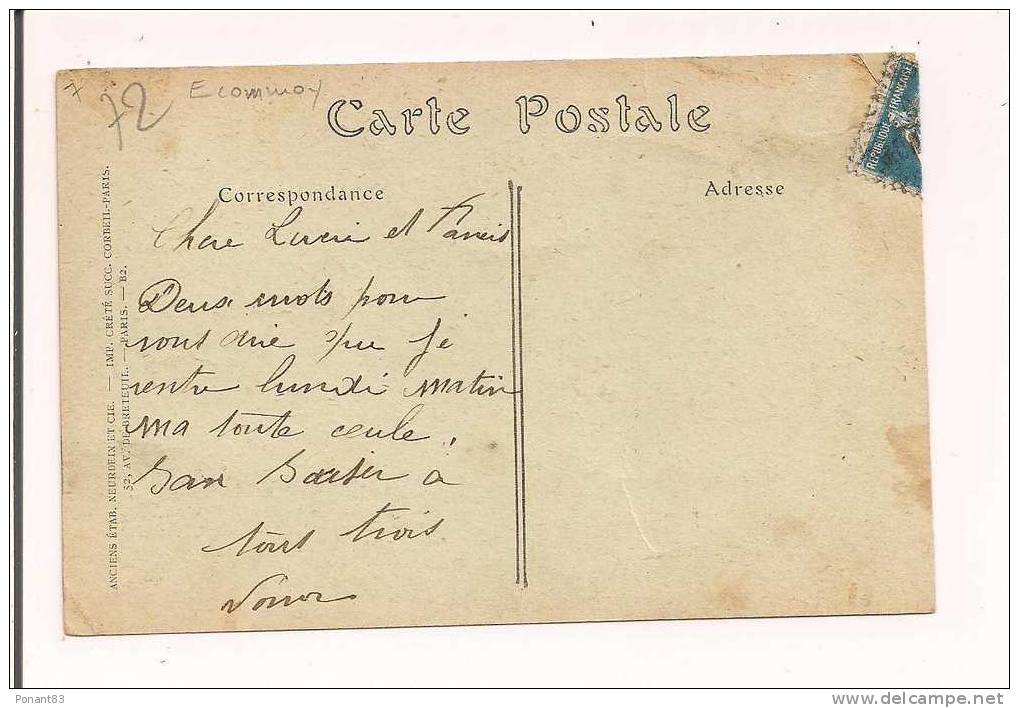 7
72
Ecommoy
Carte Postale
REPUBLIQUE FRANCAISE
Correspondance
Adresse
Chere Lucie et
Deux mots pour
vous dire que je
rentre lundi matin
ma toute ceule.
Bon Baiser à
tous trois
ANCIENS ÉTAB. NEURDEIN ET CIE. — IMP. CRÉTÉ SUCC. CORBEIL-PARIS.
52, AV. DE BRETEUIL. — PARIS. — B2.
Ponant83
www.delcampe.net